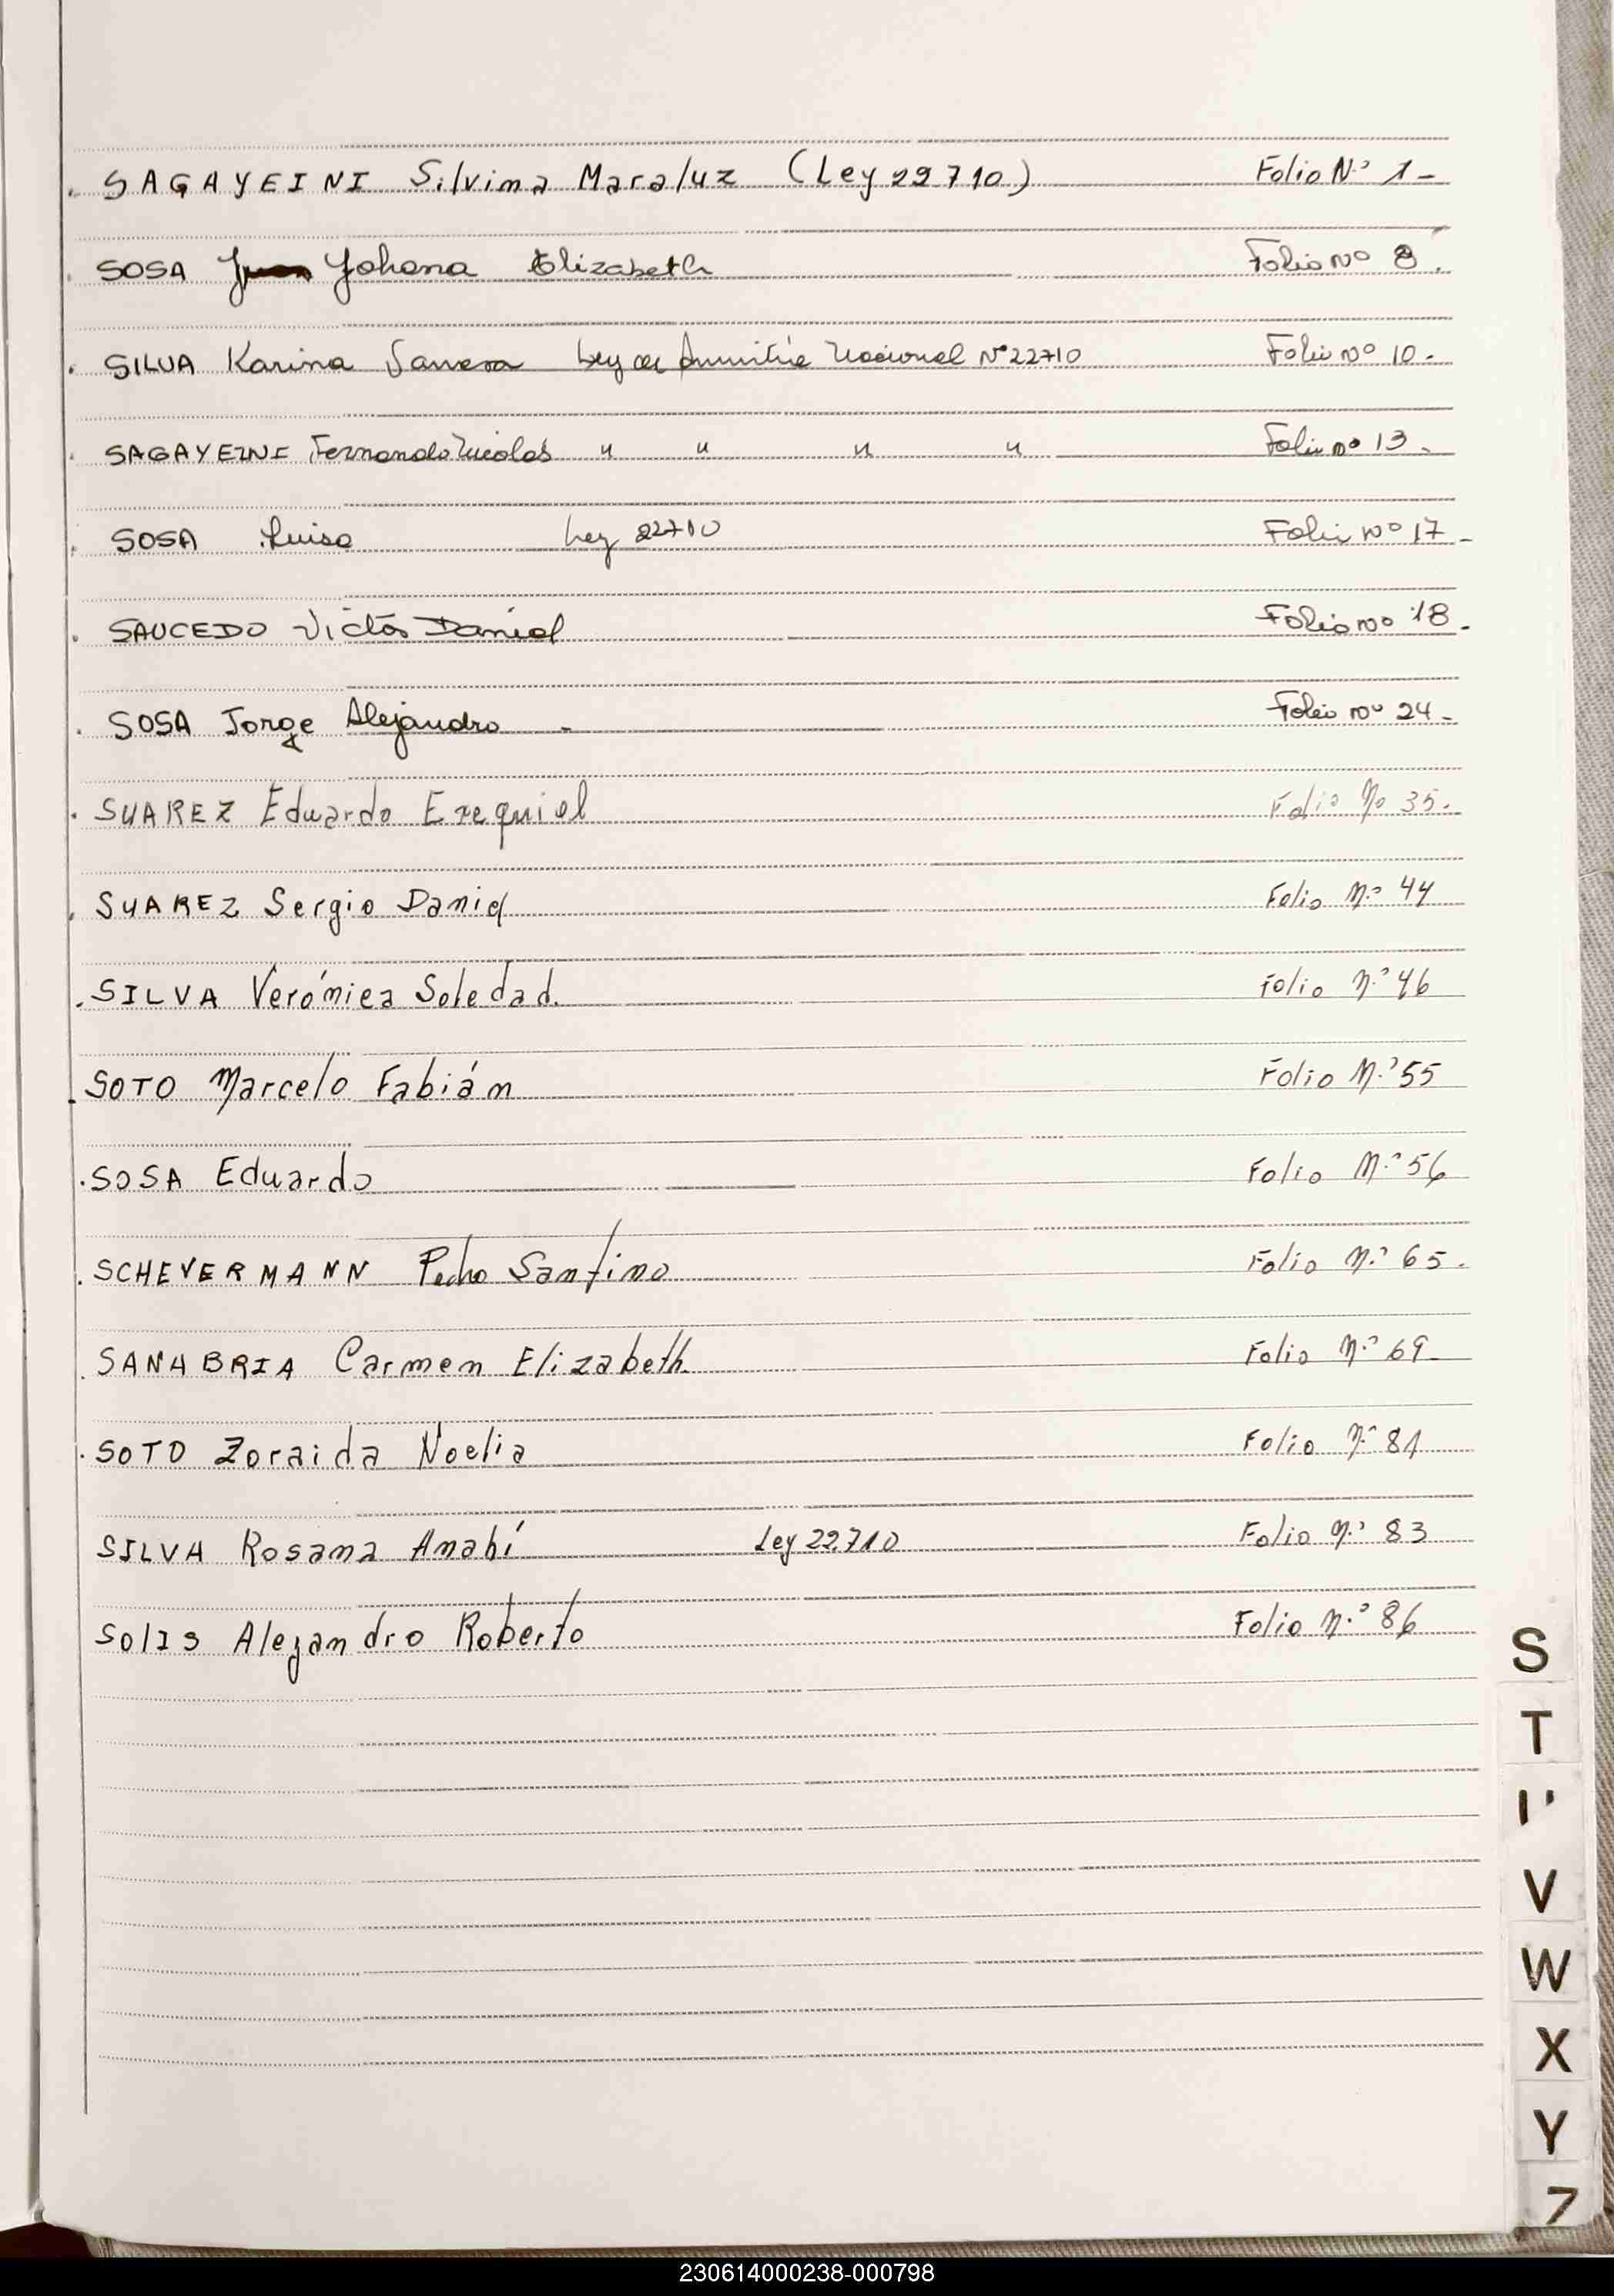 . SAGAYEINI Silvina Maraluz (Ley 22710) Folio N° 1-
. SOSA Yohana Elizabeth Folio n° 8.
. SILVA Karina Vanesa Ley de Amnistía Nacional N° 22710 Folio n° 10.-
. SAGAYEINI Fernando Nicolás " " " " Folio n° 13.-
. SOSA Luisa Ley 22710 Folio n° 17.-
. SAUCEDO Victor Daniel Folio n° 18.-
. SOSA Jorge Alejandro.- Folio n° 24.-
. SUAREZ Eduardo Ezequiel Folio n° 35.
. SUAREZ Sergio Daniel Folio n° 44
. SILVA Verónica Soledad. Folio n° 46
. SOTO Marcelo Fabián Folio N° 55
. SOSA Eduardo Folio N° 56
. SCHEVERMANN Pedro Santino Folio n° 65.
. SANABRIA Carmen Elizabeth. Folio n° 69
. SOTO Zoraida Noelia Folio n° 81
SILVA Rosana Anahí Ley 22.710 Folio n° 83
SOLIS Alejandro Roberto Folio n° 86
S
T
V
W
X
Y
Z
230614000238-000798